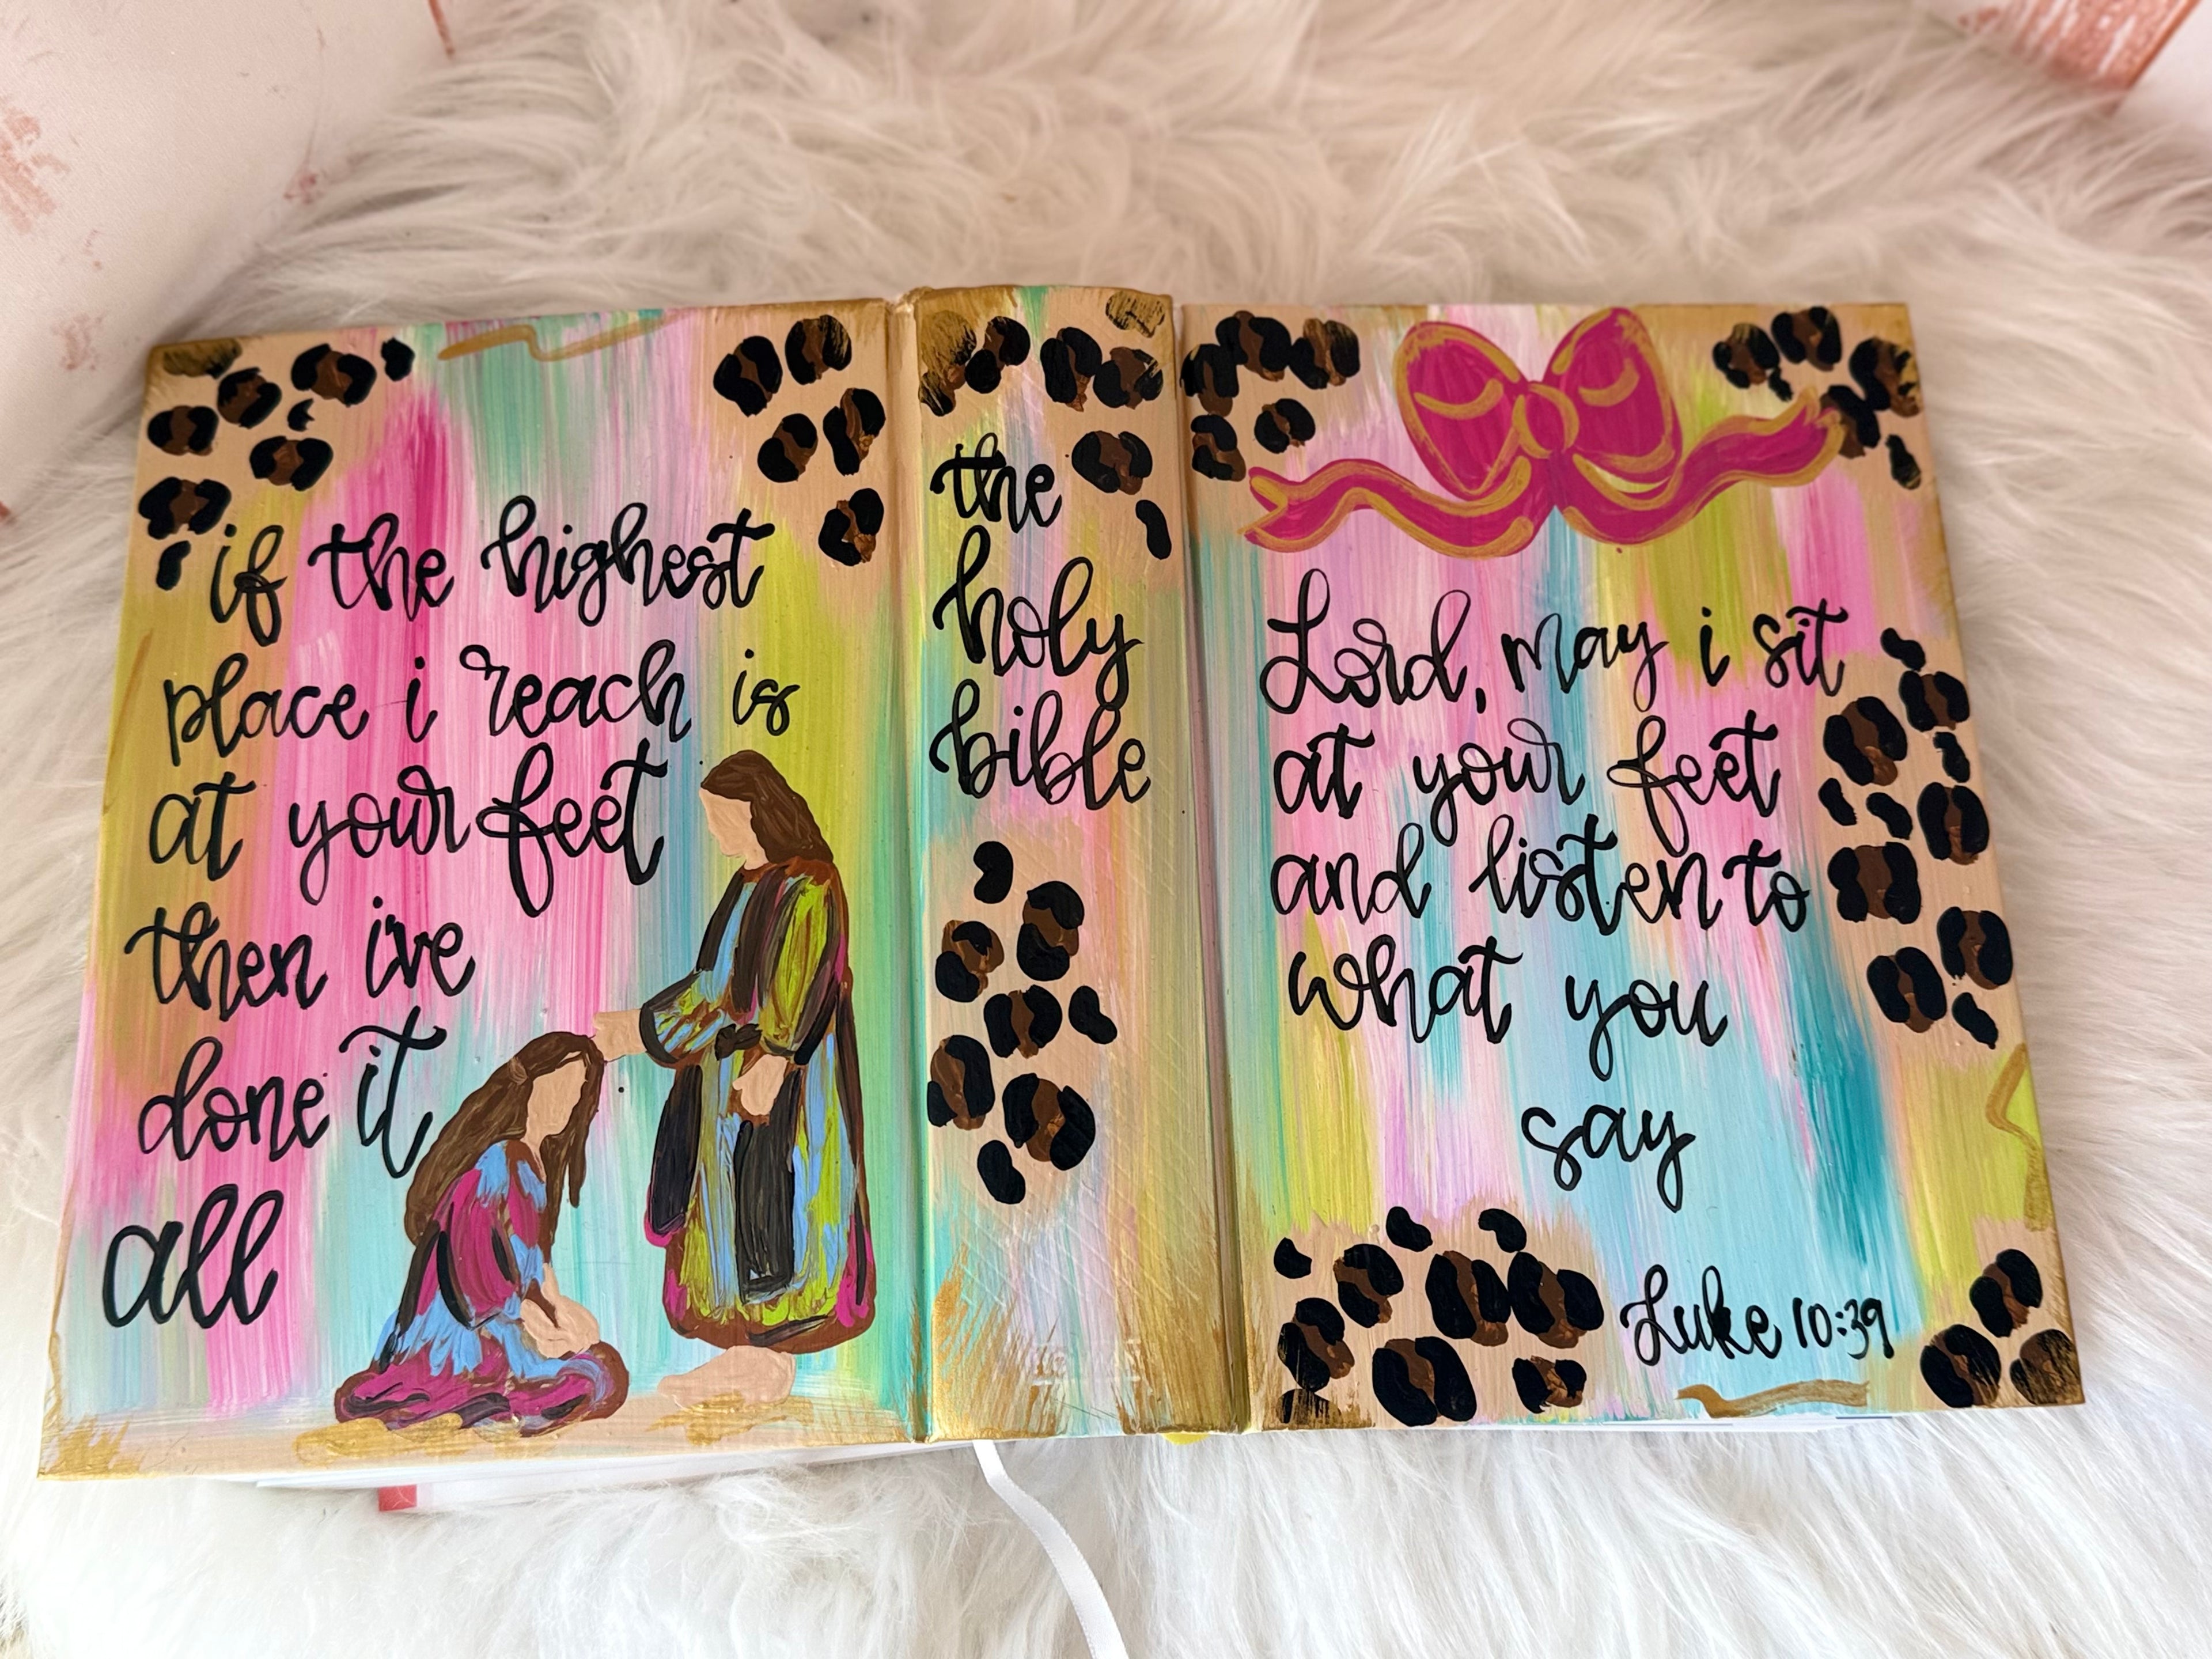 if the highest
place i reach is
at your feet
then i've
done it
all
the
holy
bible
Lord, may i sit
at your feet
and listen to
what you
say
Luke 10:39